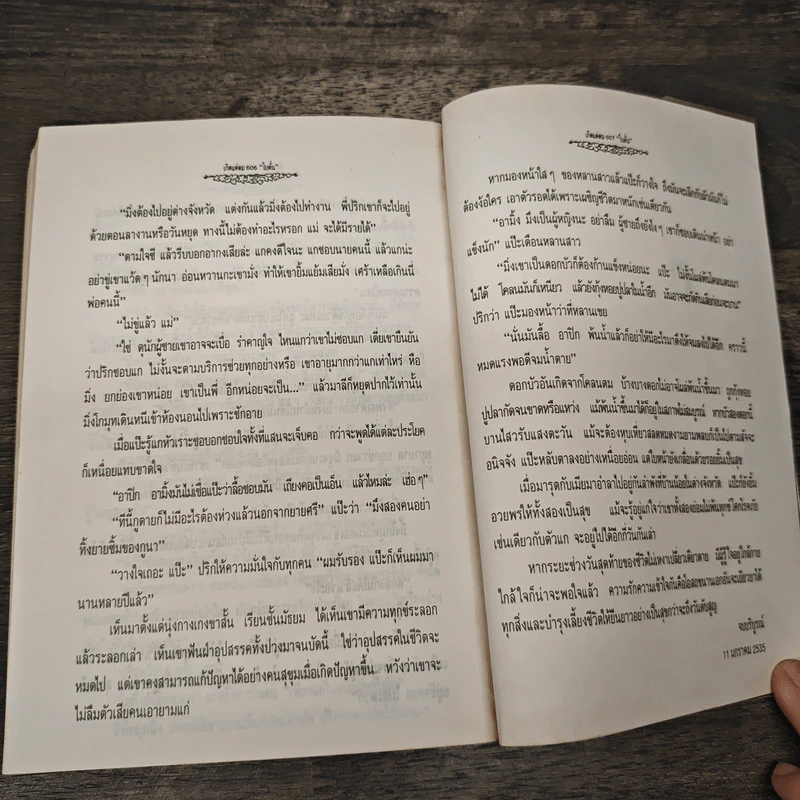 เกิดแต่ตม 606 "โบตั๋น"
"มิ่งต้องไปอยู่ต่างจังหวัด แต่งกันแล้วมิ่งต้องไปทำงาน พี่ปริกเขาก็จะไปอยู่
ด้วยตอนลางานหรือวันหยุด ทางนี้ไม่ต้องทำอะไรหรอก แม่ จะได้มีรายได้"
"ตามใจซี แล้วรีบบอกอากงเสียล่ะ แกคงดีใจนะ แกชอบนายคนนี้ แล้วแกน่ะ
อย่าขู่เขาแว้ด ๆ นักนา อ่อนหวานกะเขามั่ง ทำให้เขายิ้มแย้มเสียมั่ง เศร้าเหลือเกินนี่
พ่อคนนี้"
"ไม่ขู่แล้ว แม่"
"ใช่ ดุนักผู้ชายเขาอาจจะเบื่อ รำคาญใจ ไหนแกว่าเขาไม่ชอบแก เตี่ยเขายืนยัน
ว่าปริกชอบแก ไม่งั้นจะตามบริการช่วยทุกอย่างหรือ เขาอายุมากกว่าแกเท่าไหร่ หือ
มิ่ง ยกย่องเขาหน่อย เขาเป็นพี่ อีกหน่อยจะเป็น..." แล้วมาลีก็หยุดปากไว้เท่านั้น
มิ่งโกมุทเดินหนีเข้าห้องนอนไปเพราะชักอาย
เมื่อแป๊ะรู้แกหัวเราะชอบอกชอบใจทั้งที่แสนจะเจ็บคอ กว่าจะพูดได้แต่ละประโยค
ก็เหนื่อยแทบขาดใจ
"อาปิก อามิ้งมันไม่เชื่อแป๊ะว่าลื้อชอบมัน เถียงคอเป็นเอ็น แล้วไหมล่ะ เฮ่อ ๆ"
"ทีนี้กูตายก็ไม่มีอะไรต้องห่วงแล้วนอกจากยายศรี" แป๊ะว่า "มึงสองคนอย่า
ทิ้งยายซิ้มของกูนา"
"วางใจเถอะ แป๊ะ" ปริกให้ความมั่นใจกับทุกคน "ผมรับรอง แป๊ะก็เห็นผมมา
นานหลายปีแล้ว"
เห็นมาตั้งแต่นุ่งกางเกงขาสั้น เรียนชั้นมัธยม ได้เห็นเขามีความทุกข์ระลอก
แล้วระลอกเล่า เห็นเขาฟันฝ่าอุปสรรคทั้งปวงมาจนบัดนี้ ใช่ว่าอุปสรรคในชีวิตจะ
หมดไป แต่เขาคงสามารถแก้ปัญหาได้อย่างคนสุขุมเมื่อเกิดปัญหาขึ้น หวังว่าเขาจะ
ไม่ลืมตัวเสียคนเอายามแก่
เกิดแต่ตม 607 "โบตั๋น"
หากมองหน้าใส ๆ ของหลานสาวแล้วแป๊ะก็วางใจ ถึงมันจะเลิกกับผัวมันก็ไม่
ต้องง้อใคร เอาตัวรอดได้เพราะเผชิญชีวิตมาหนักเช่นเดียวกัน
"อามิ้ง มึงเป็นผู้หญิงนะ อย่าลืม ผู้ชายถึงยังไง ๆ เขาก็ชอบเดินนำหน้า อย่า
แข็งนัก" แป๊ะเตือนหลานสาว
"มิ่งเขาเป็นดอกบัวก็ต้องก้านแข็งหน่อยนะ แป๊ะ ไม่งั้นโผล่พ้นโคลนตมมา
ไม่ได้ โคลนมันก็เหนียว แล้วยังกุ้งหอยปูปลาในน้ำอีก มันอาจจะกัดกินเสียก่อนจะบาน"
ปริกว่า แป๊ะมองหน้าว่าที่หลานเขย
"นั่นมันลื้อ อาปิก พ้นน้ำแล้วก็อย่าให้มีอะไรมาดึงให้จมลงไปได้อีก คราวนี้
หมดแรงพอดีจมน้ำตาย"
ดอกบัวอันเกิดจากโคลนตม บ้างบางดอกไม่อาจโผล่พ้นน้ำขึ้นมา ถูกกุ้งหอย
ปูปลากัดจนขาดหรือแหว่ง แม้พ้นน้ำขึ้นมาได้ก็อยู่ในสภาพไม่สมบูรณ์ หากบัวสองดอกนี้
บานไสวรับแสงตะวัน แม้จะต้องหุบเหี่ยวสลดหมดงามยามพลบก็เป็นไปตามสัจจะ
อนิจจัง แป๊ะหลับตาลงอย่างเหนื่อยอ่อน แต่ใบหน้ายังเกลื่อนด้วยรอยยิ้มเป็นสุข
เมื่อมารุตกับเมียมาอำลาไปอยู่กันลำพังที่บ้านน้อยในต่างจังหวัด แป๊ะก็ยังยิ้ม
อวยพรให้ทั้งสองเป็นสุข แม้จะรู้อยู่แก่ใจว่าเขาทั้งสองย่อมไม่พ้นทุกข์โศกโรคภัย
เช่นเดียวกับตัวแก จะอยู่ไปได้อีกกี่วันกันเล่า
หากระยะช่วงวันสุดท้ายของชีวิตไม่เหงาเปลี่ยวเดียวดาย มีผู้รู้ใจอยู่ใกล้กาย
ใกล้ใจก็น่าจะพอใจแล้ว ความรักความเข้าใจกันคือโอสถขนานเอกอันจะเยียวยาได้
ทุกสิ่งและบำรุงเลี้ยงชีวิตให้ยืนยาวอย่างเป็นสุขกว่าจะถึงวันดับสูญ
จบบริบูรณ์
11 มกราคม 2535